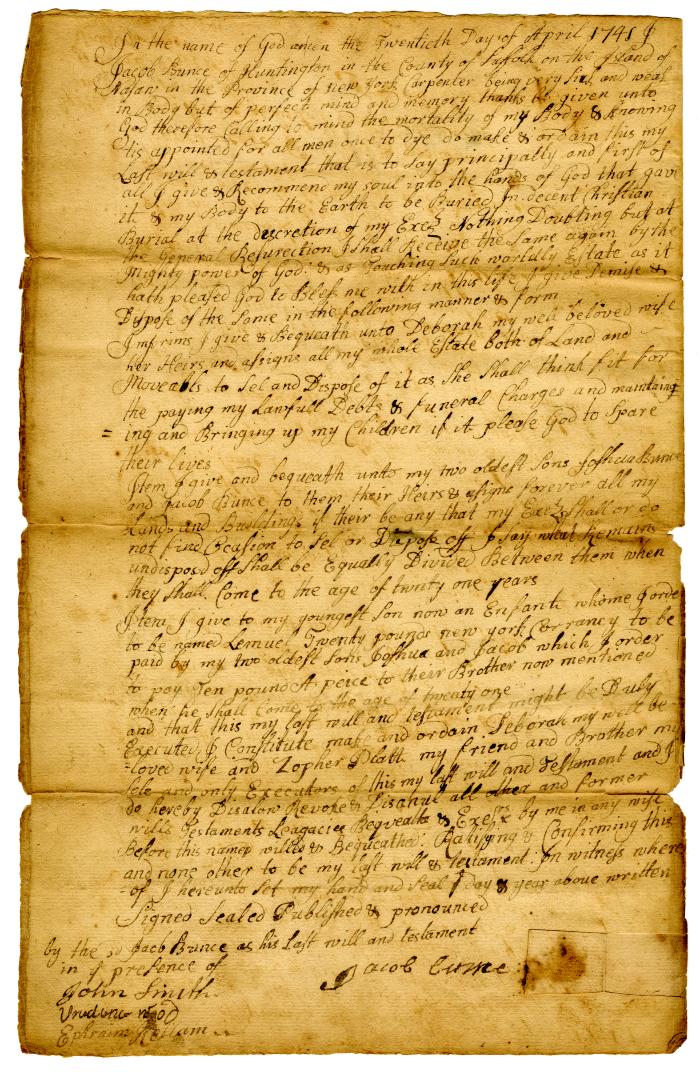 In the name of God amen the Twentieth Day of April 1741 I
Jacob Bunce of Huntington in the County of Suffolk on the Island of
Nasaw in the Province of new York Carpenter being very Sick and weak
in Body but of perfect mind and memory thanks be given unto
God therefore Calling to mind the mortality of my Body & Knowing
tis appointed for all men once to dye do make & ordain this my
Last will & testament that is to Say principally and first of
all I give & Recommend my soul into the hands of God that gave
it & my Body to the Earth to be Buried In decent Christian
Burial at the descretion of my Exe:rs Nothing Doubting but at
the General Resurection I Shall Receive the Same again by the
Mighty power of God: & as Touching Such worldly Estate as it
hath pleased God to Bless me with in this life I give Demise &
Dispose of the Same in the following manner & form
Imprims I give & Bequeath unto Deborah my well beloved wife
her Heirs and asigns all my whole Estate both of Land and
Moveabls to Sel and Dispose of it as She Shall think fit for
the paying my Lawfull Debts & Funeral Charges and maintaing
= ing and Bringing up my Children if it please God to Spare
their lives
Item I give and bequeath unto my two oldest Sons Joshua Bunce
and Jacob Bunce to them their Heirs & asigns forever all my
Lands and Buildings if their be any that my Exe:rs Shall or do
not find Ocasion to Sel or Dispose off I Say what Remains
undisposd off Shall be Equally Divided Between them when
they Shall Come to the age of twnty one years
Item I give to my youngest Son now an Enfante whome I orde
to be named Lemuel Twenty pounds new york Currancy to be
paid by my two oldest Sons Joshua and Jacob which I order
to pay Ten pound A peice to their Brother now mentioned
when he Shall Come to the age of twenty one
and that this my last will and testament might be Duly
Executed I Constitute make and ordain Deborah my well be
=loved wife and Zopher Platt my friend and Brother my
Sole and only Executors of this my last will and Testament and I
do hereby Disalow Revoke & Disanul all other and former
wills Testaments Leagacies Bequeaths & Exe:rs by me in any wise
Before this named willed & Bequeathed: Ratifying & Confirming this
and none other to be my last will & testament: In witness where
=of I hereunto Set my hand and Seal ye day & year above written
Signed Sealed Published & pronounced
by the sd Jacb Bunce as his Last will and testament
in ye presence of
Jacob Bunce
John Smith
Prudence
Ephraim